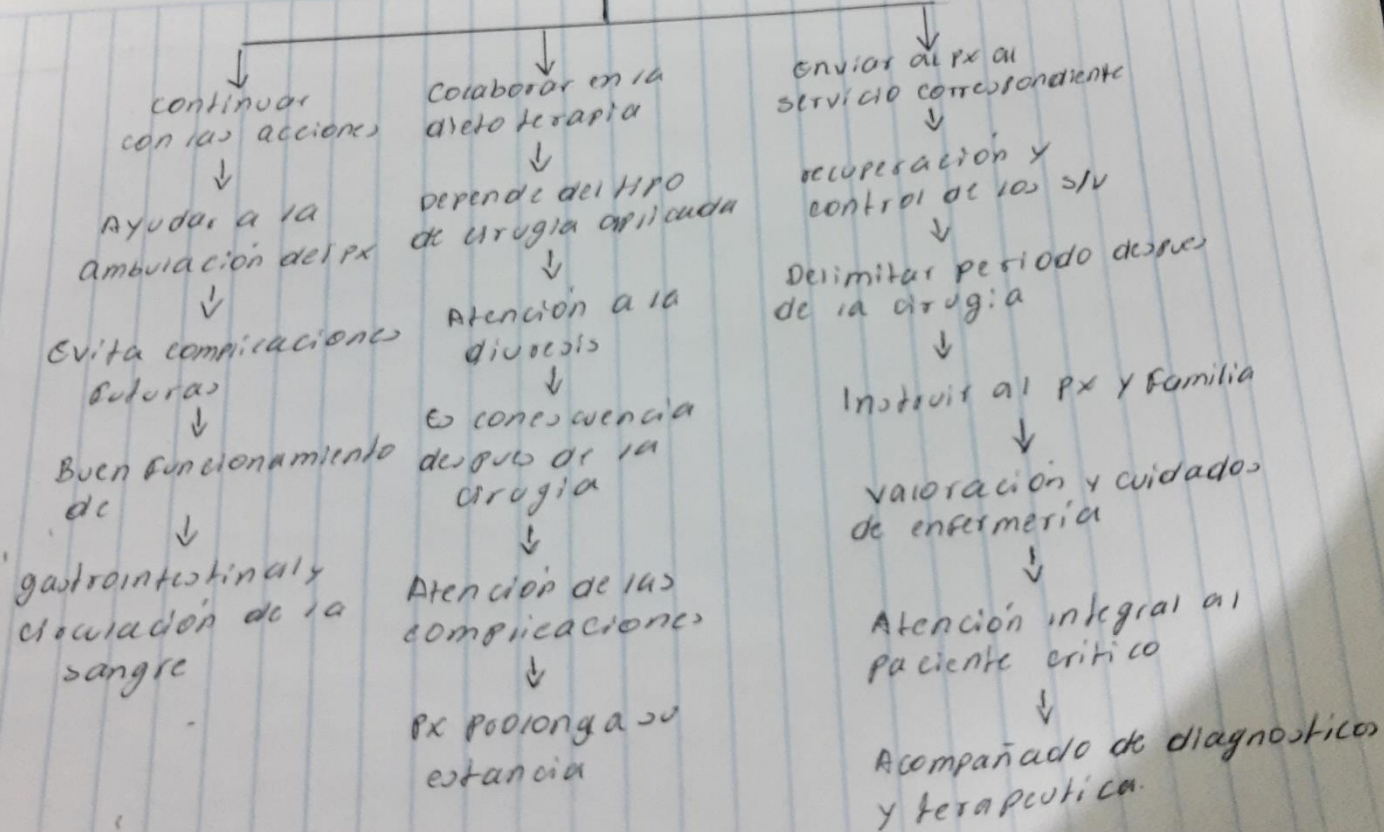 continuar
con las acciones
Ayudar a la
ambulación del px
Evita complicaciones
futuras
Buen funcionamiento
de
gastrointestinal y
circulación de la
sangre
Colaborar en la
dieto terapia
Depende del tipo
de cirugia aplicada
Atención a la
diuresis
Es conescuencia
despues de la
cirugia
Atención de las
complicaciones
px prolonga su
estancia
Enviar al px al
servicio correspondiente
recuperación y
control de los s/v
Delimitar periodo despues
de la cirugia
Instruir al px y familia
Valoración y cuidados
de enfermeria
Atención integral al
paciente critico
Acompañado de diagnosticos
y terapeutica.